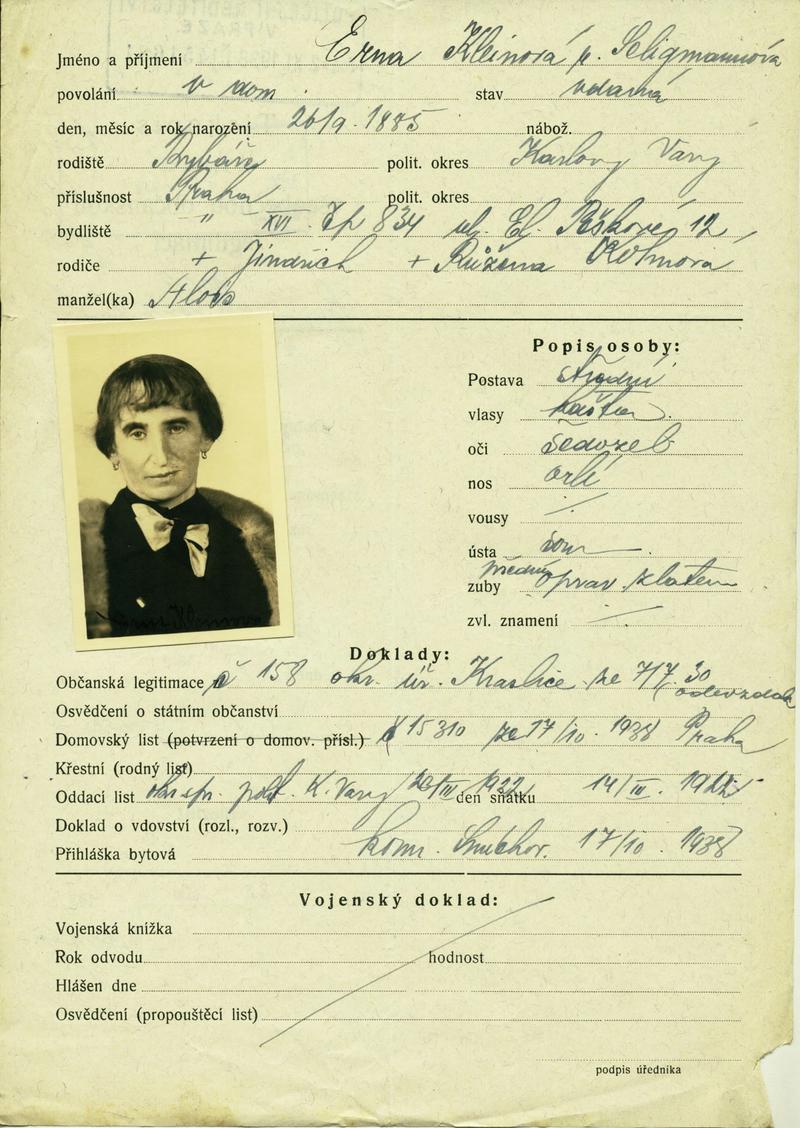 Jméno a příjmení Erna Kleinová r. Seligmannová
povolání v dom. stav vdaná
den, měsíc a rok narození 26/9. 1885 nábož.
rodiště Rybáře polit. okres Karlovy Vary
příslušnost Praha polit. okres
bydliště " XVI. čp 834 ul. El. Peškové 12
rodiče + Jindřich + Růžena Kohnová
manžel(ka) Alois
Popis osoby:
Postava střední
vlasy kaštan.
oči šedozel
nos orlí
vousy /
ústa
zuby přední oprav. zlatem
zvl. znamení /
Doklady:
Občanská legitimace č 158 okr. úř. Kraslice ze 7/7. 30 odevzdala
Osvědčení o státním občanství
Domovský list (potvrzení o domov. přísl.) č 15310 ze 17/10. 1938 Praha
Křestní (rodný list)
Oddací list K. Vary 1922 den sňatku 14/III. 1922
Doklad o vdovství (rozl., rozv.)
Přihláška bytová kom. Smíchov. 17/10. 1938
Vojenský doklad:
Vojenská knížka
Rok odvodu hodnost
Hlášen dne
Osvědčení (propouštěcí list)
podpis úředníka